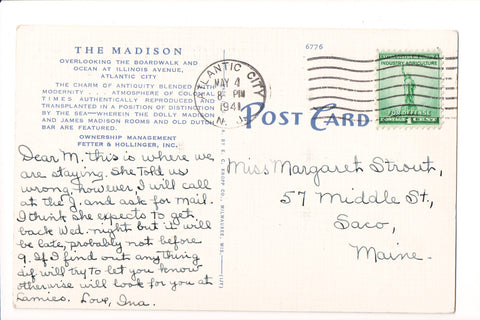 THE MADISON
OVERLOOKING THE BOARDWALK AND
OCEAN AT ILLINOIS AVENUE,
ATLANTIC CITY
THE CHARM OF ANTIQUITY BLENDED WITH
MODERNITY . . . ATMOSPHERE OF COLONIAL
TIMES AUTHENTICALLY REPRODUCED AND
TRANSPLANTED IN A POSITION OF DISTINCTION
BY THE SEA—WHEREIN THE DOLLY MADISON
AND JAMES MADISON ROOMS AND OLD DUTCH
BAR ARE FEATURED.
OWNERSHIP MANAGEMENT
FETTER & HOLLINGER, INC.
Dear M. this is where we
are staying. She told us
wrong, however, I will call
at the J. and ask for mail.
I think she expects to get
back Wed. night but it will
be late, probably not before
9. If I find out anything
dif will try to let you know
otherwise will look for you at
Lamies. Love, Ina.
6776
ATLANTIC CITY
MAY 4
8 PM
1941
N. J.
POST CARD
INDUSTRY AGRICULTURE
FOR DEFENSE
1 CENT
Miss Margaret Strout,
57 Middle St.,
Saco,
Maine.